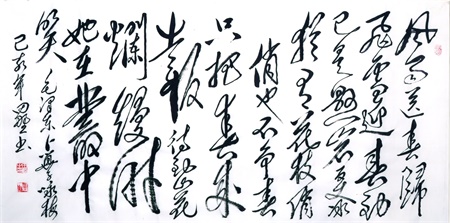 风雨送春歸
飛雪迎春到
已是懸崖百丈冰
犹有花枝俏
俏也不争春
只把春来
报 待到山花
爛漫时
她在叢中
笑 毛泽东卜算子咏梅
己亥年 田 书